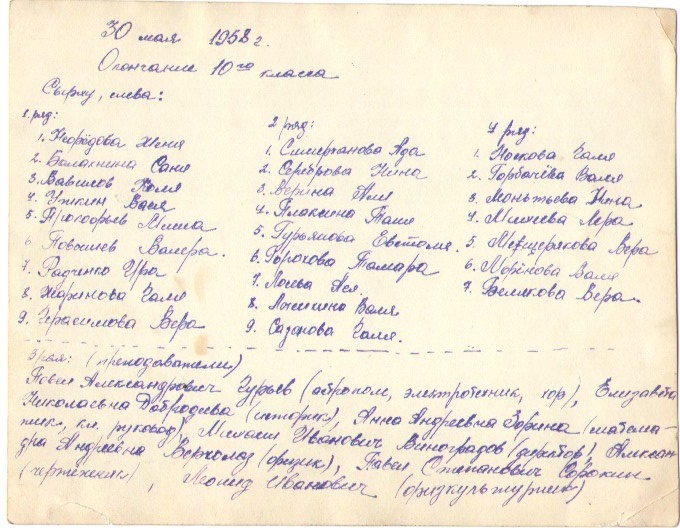 30 мая 1958 г.
Окончание 10го класса
Сверху, слева:
1. ряд:
1. Нефёдова Женя
2. Балахнина Саня
3. Вавилов Коля
4. Уткин Вася
5. Прокофьев Миша
6. Повшиев Валера.
7. Радченко Ира
8. Жаринова Галя
9. Герасимова Вера
2 ряд:
1. Симерханова Ада
2. Сереброва Нина
3. Верина Аля
4. Плаксина Таня
5. Гурьянова
6. Горохова Тамара
7. Лосва Ася.
8. Лямкина Валя
9. Сазанова Галя.
4 ряд:
1. Носкова Галя
2. Горбачёва Валя
3. Нина
4. Михеева Лера
5. Мещерякова Вера
6. Морёнова Валя
7. Белякова Вера.
3 ряд: (преподаватели)
Павел Александрович Гурьев (астроном, электротехник, хор), Елизавета
Николаевна Добродеева (историк), Анна Андреевна Зорина (матема-
тик, кл. руковод), Михаил Иванович Виноградов (директор), Алексан-
дра Андреевна Верхолаз (физик), Павел Степанович Сорокин
(чертёжник), Леонид Иванович (физкультурник)